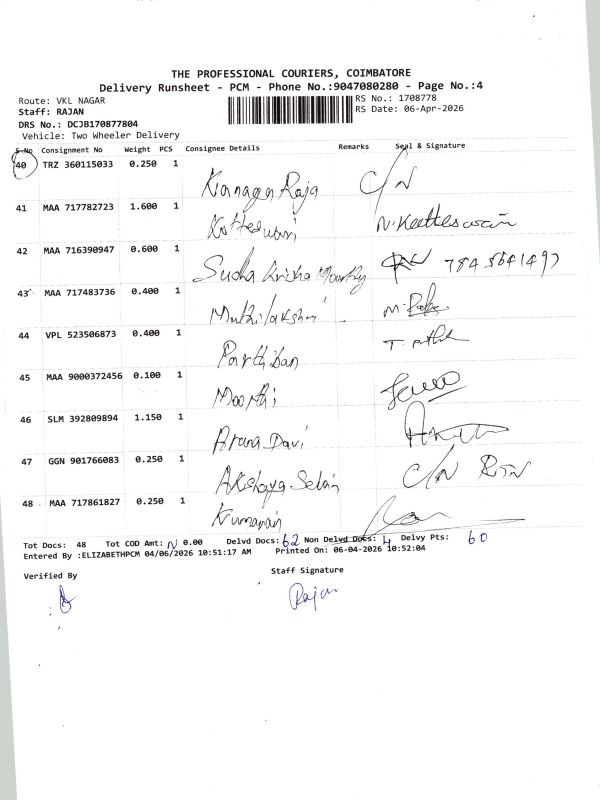 THE PROFESSIONAL COURIERS, COIMBATORE
Delivery Runsheet - PCM - Phone No.:9047080280 - Page No.:4
Route: VKL NAGAR
RS No.: 1708778
Staff: RAJAN
RS Date: 06-Apr-2026
DRS No.: DCJB170877804
Vehicle: Two Wheeler Delivery
S.No Consignment No Weight PCS Consignee Details Remarks Seal & Signature
40 TRZ 360115033 0.250 1 Kanaga Raja C/N
41 MAA 717782723 1.600 1 Koteswari N. Keetleswarin
42 MAA 716390947 0.600 1 Sudha Krisha Moorthy 7845641497
43 MAA 717483736 0.400 1 Muthilakshmi
44 VPL 523506873 0.400 1 Parthiban
45 MAA 9000372456 0.100 1 Moorthi
46 SLM 392809894 1.150 1 Aruna Davi
47 GGN 901766083 0.250 1 Akshaya Selvin C/N RTN
48 MAA 717861827 0.250 1 Kumaran
Tot Docs: 48 Tot COD Amt: N 0.00 Delvd Docs: 62 Non Delvd Docs: 4 Delvy Pts: 60
Entered By :ELIZABETHPCM 04/06/2026 10:51:17 AM Printed On: 06-04-2026 10:52:04
Verified By
Staff Signature
Rajan